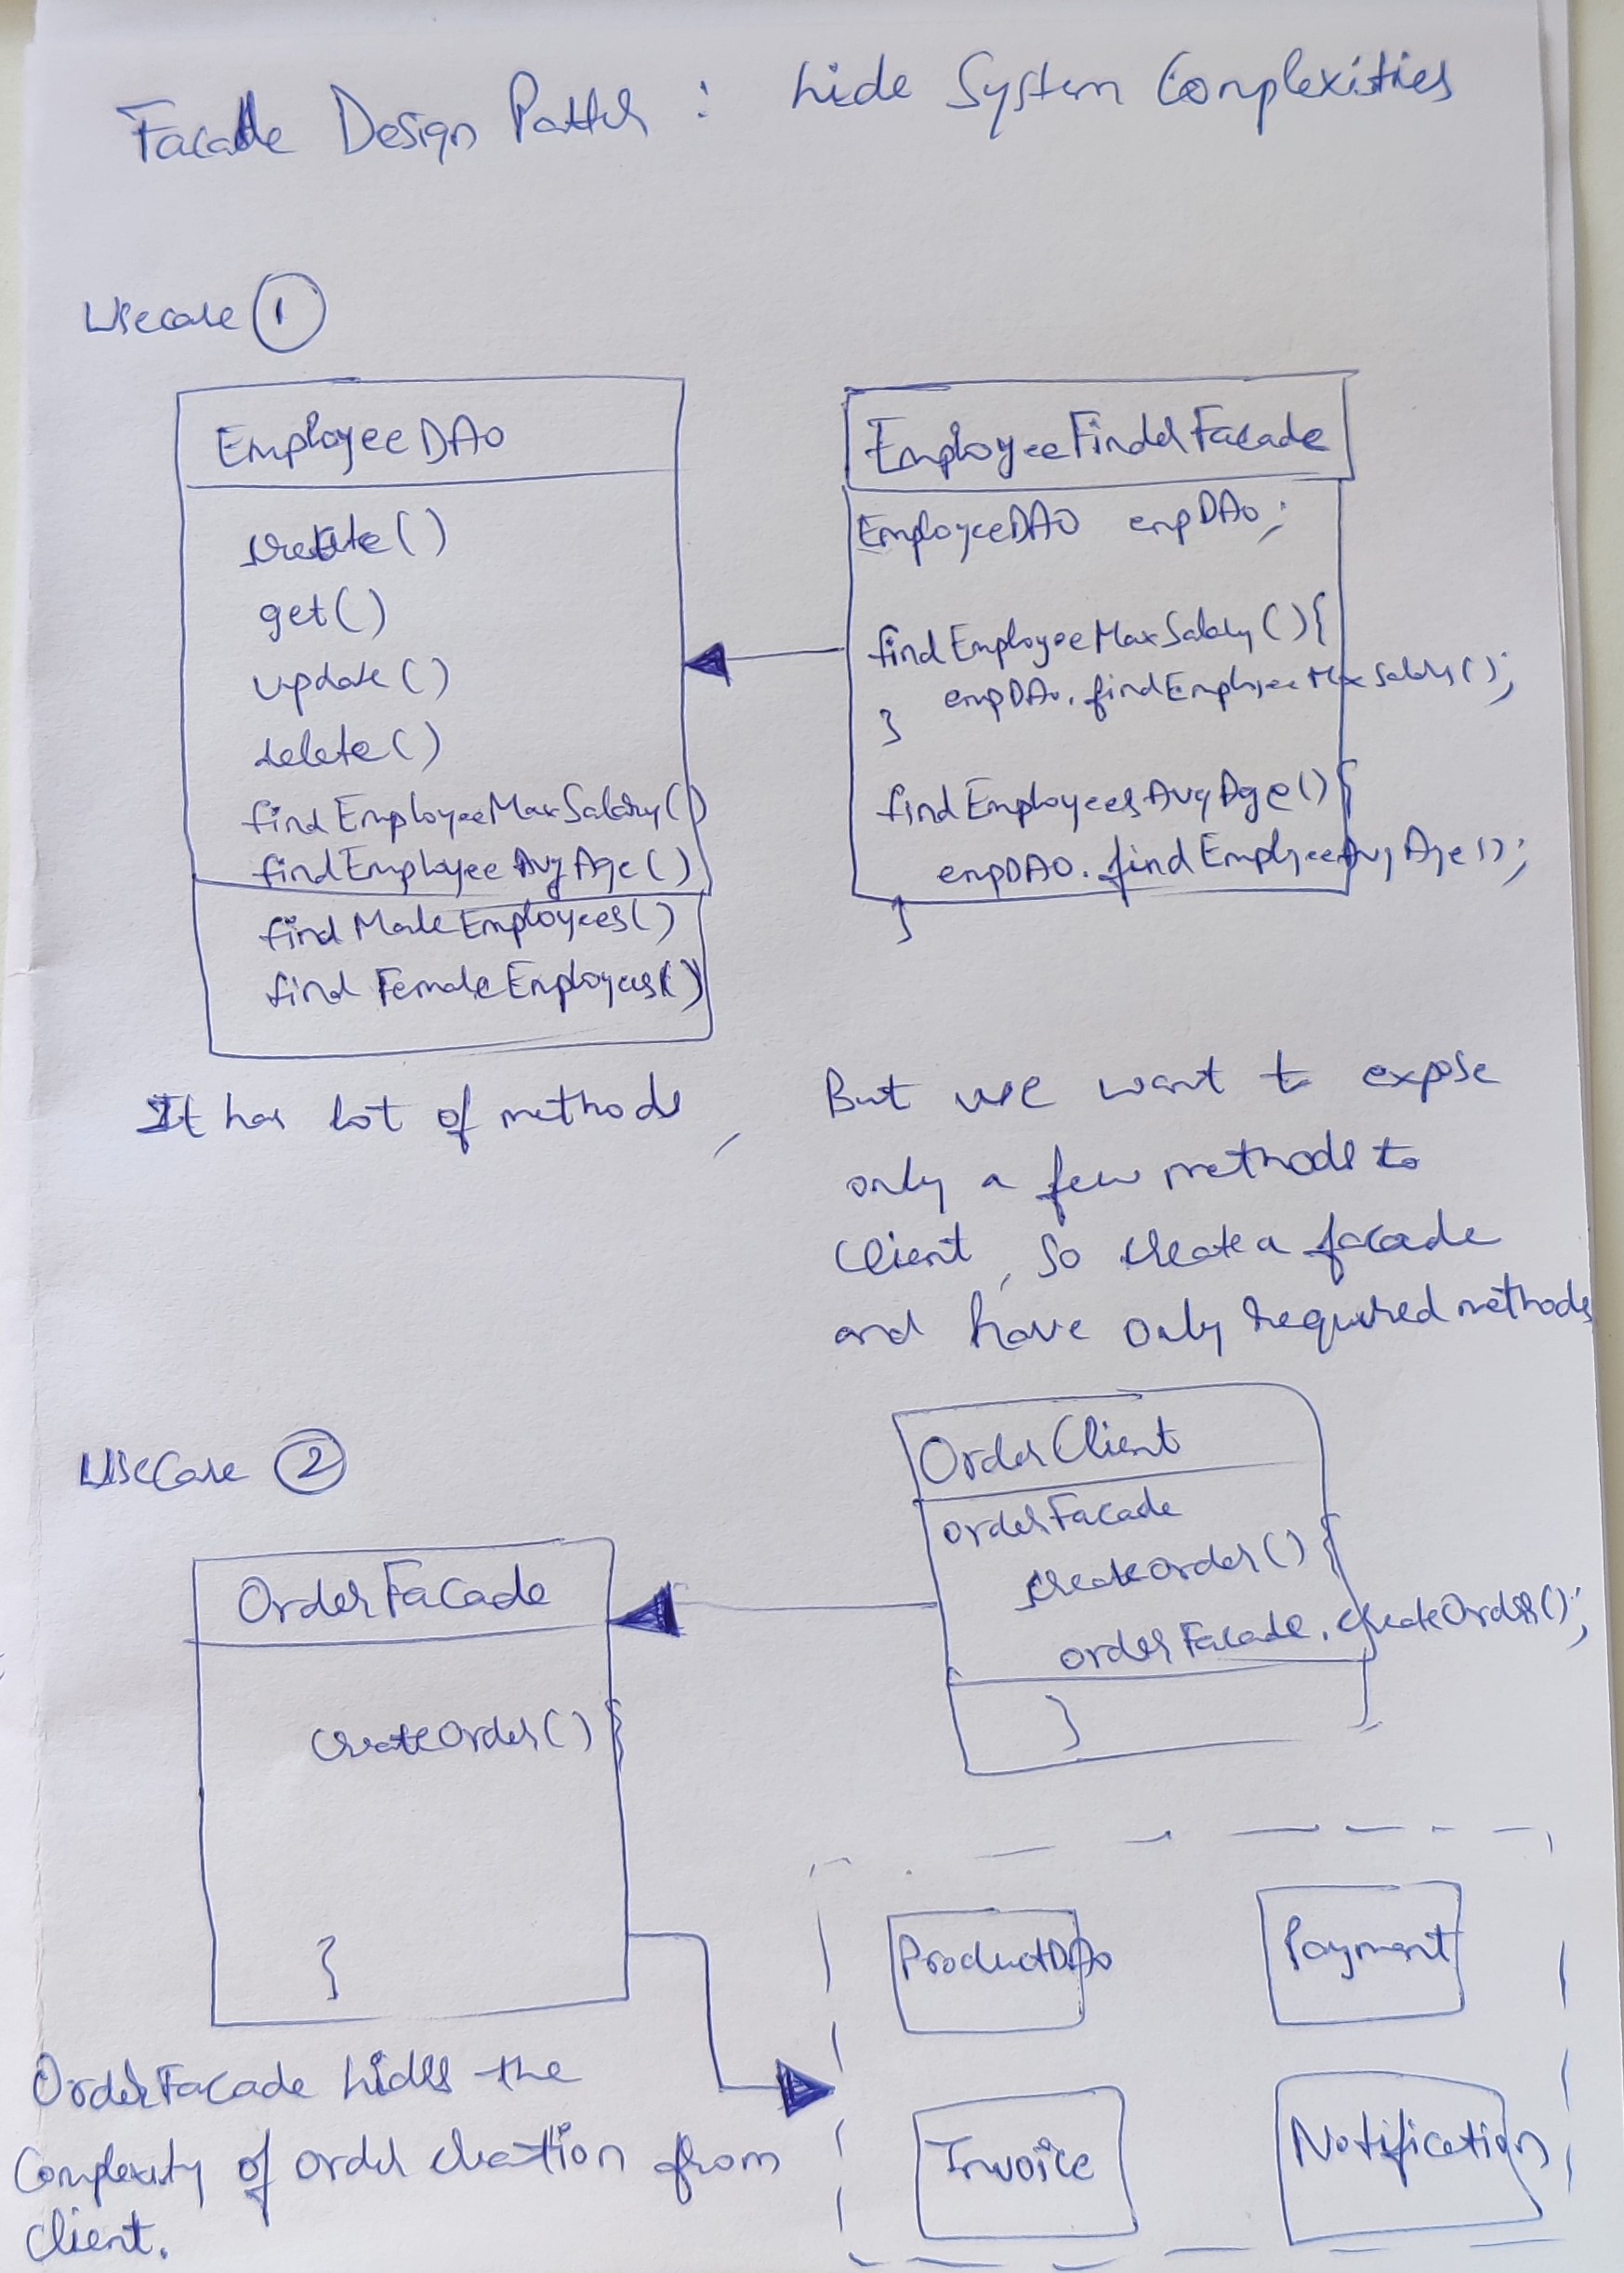 Facade Design Pattern : hide System Complexities
Usecase 1
EmployeeDAO
create()
get()
update()
delete()
findEmployeeMaxSalary()
findEmployeeAvgAge()
findMaleEmployees()
findFemaleEmployees()
It has lot of methods,
EmployeeFinderFacade
EmployeeDAO empDAO;
findEmployeeMaxSalary(){
empDAO.findEmployeeMaxSalary();
}
findEmployeesAvgAge(){
empDAO.findEmployeeAvgAge();
}
But we want to expose
only a few methods to
client, so create a facade
and have only required methods
UseCase 2
OrderFacade
createOrder(){
}
OrderClient
orderFacade
createorder(){
orderFacade.createOrder();
}
ProductDAO
Payment
Invoice
Notification
OrderFacade hides the
Complexity of order creation from
client.